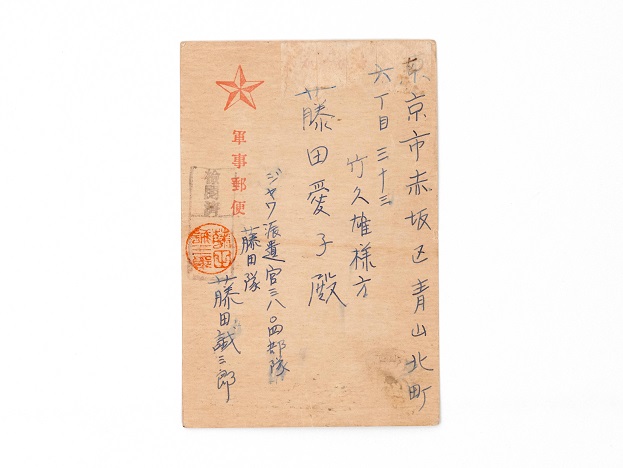 東京市赤坂区青山北町
六丁目三十三
竹久雄様方
藤田愛子殿
軍事郵便
検閲済
ジャワ派遣官三八〇四部隊
藤田隊
藤田誠三郎